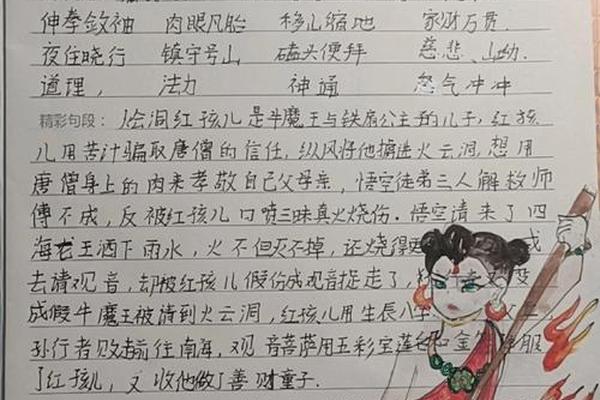 伸拳敛袖 肉眼凡胎 移山缩地 家财万贯
夜住晓行 镇守号山 磕头便拜 慈悲、山坳
道理, 法力 神通 怒气冲冲
精彩句段: 红孩儿是牛魔王与铁扇公主的儿子,红孩
儿用苦计骗取唐僧的信任,纵风将他摄进火云洞,想用
唐僧身上的肉来孝敬自己父母亲,悟空徒弟三人解救师
傅不成,反被红孩儿口喷三昧真火烧伤.悟空请来了四
海龙王洒下雨水,火不但灭不掉,还烧得
去请观音,却被红孩儿假份成观音捉走了,
成假牛魔王被请到火云洞,红孩儿用生辰八
孙行者败前往南海,观音菩萨用五彩宝莲 服
了红孩儿,又收他做了善财童子.